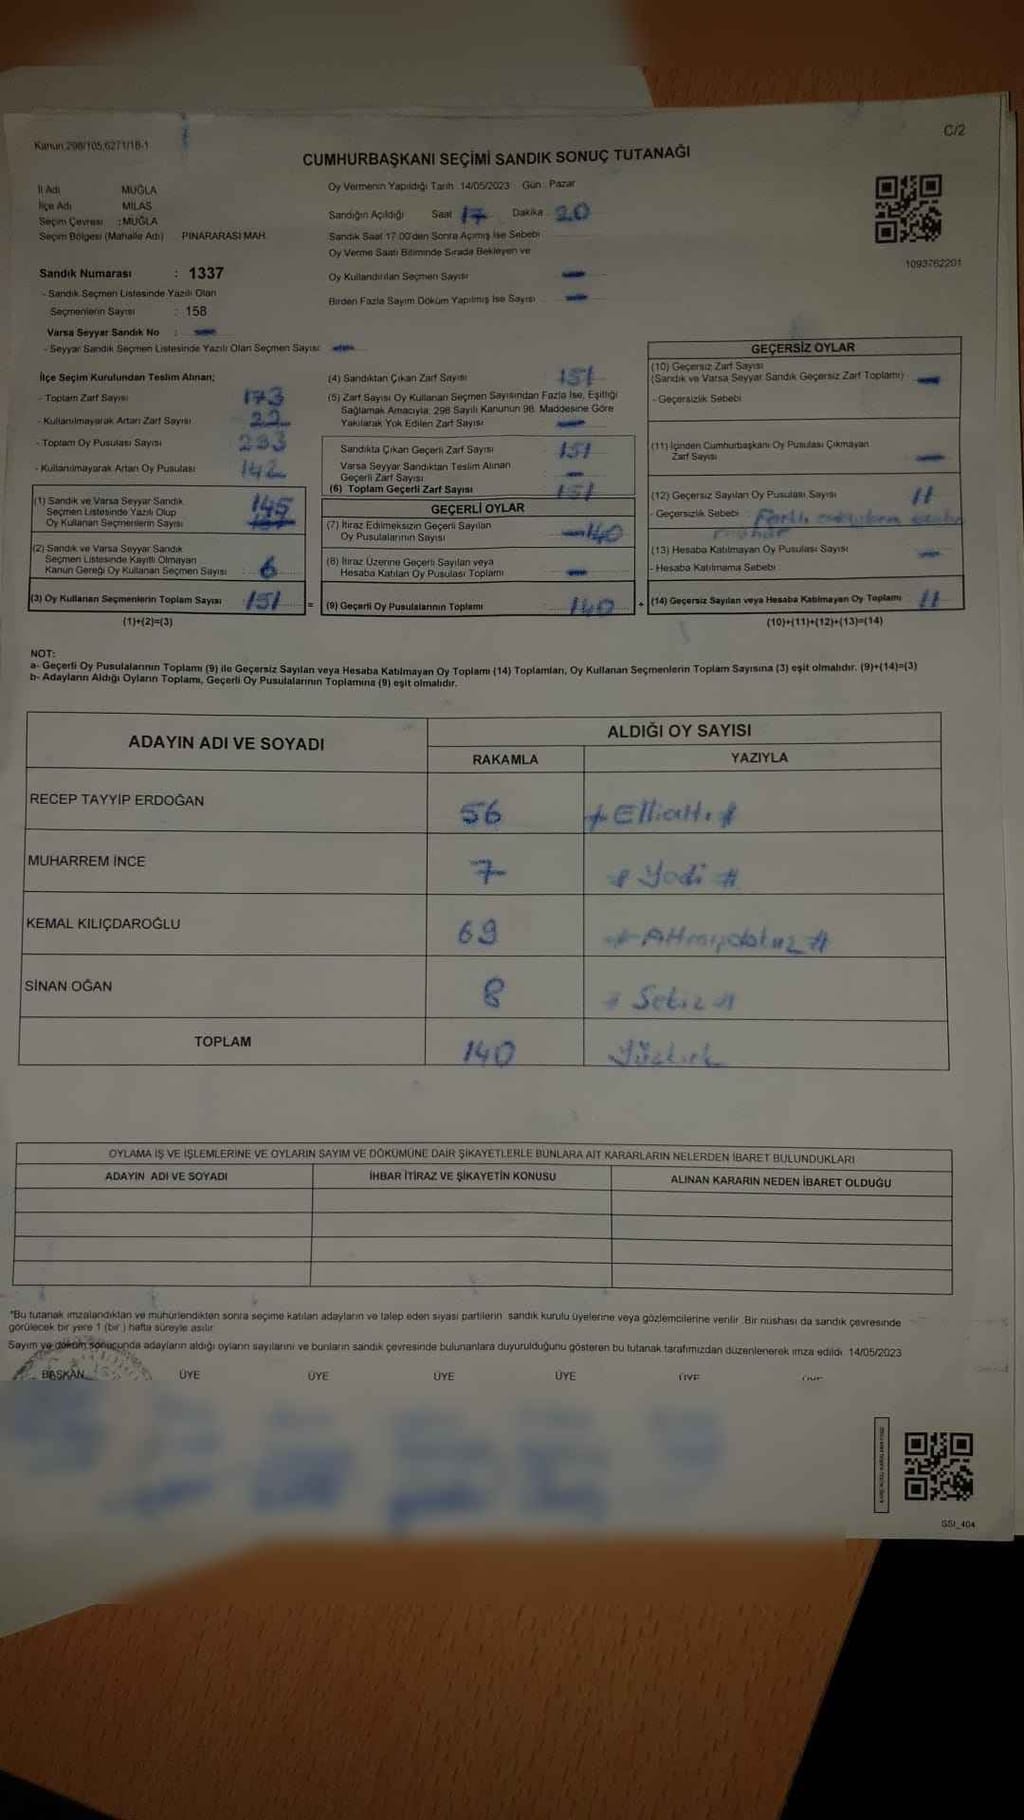 Kanun:298/105,6271/18-1
C/2
CUMHURBAŞKANI SEÇİMİ SANDIK SONUÇ TUTANAĞI
İl Adı MUĞLA
İlçe Adı MİLAS
Seçim Çevresi :MUĞLA
Seçim Bölgesi (Mahalle Adı) PINARARASI MAH.
Oy Vermenin Yapıldığı Tarih :14/05/2023 Gün : Pazar
Sandığın Açıldığı Saat 17 Dakika 20
Sandık Saat 17.00'den Sonra Açılmış İse Sebebi
Oy Verme Saati Bitiminde Sırada Bekleyen ve
Oy Kullandırılan Seçmen Sayısı —
Birden Fazla Sayım Döküm Yapılmış İse Sayısı —
1093762201
Sandık Numarası : 1337
- Sandık Seçmen Listesinde Yazılı Olan
Seçmenlerin Sayısı : 158
Varsa Seyyar Sandık No : —
- Seyyar Sandık Seçmen Listesinde Yazılı Olan Seçmen Sayısı: —
İlçe Seçim Kurulundan Teslim Alınan;
- Toplam Zarf Sayısı 173
- Kullanılmayarak Artan Zarf Sayısı 22
- Toplam Oy Pusulası Sayısı 293
- Kullanılmayarak Artan Oy Pusulası 142
(1) Sandık ve Varsa Seyyar Sandık
Seçmen Listesinde Yazılı Olup
Oy Kullanan Seçmenlerin Sayısı 145
(2) Sandık ve Varsa Seyyar Sandık
Seçmen Listesinde Kayıtlı Olmayan
Kanun Gereği Oy Kullanan Seçmen Sayısı 6
(3) Oy Kullanan Seçmenlerin Toplam Sayısı 151
(1)+(2)=(3)
(4) Sandıktan Çıkan Zarf Sayısı 151
(5) Zarf Sayısı Oy Kullanan Seçmen Sayısından Fazla İse, Eşitliği
Sağlamak Amacıyla; 298 Sayılı Kanunun 98. Maddesine Göre
Yakılarak Yok Edilen Zarf Sayısı —
Sandıkta Çıkan Geçerli Zarf Sayısı 151
Varsa Seyyar Sandıktan Teslim Alınan
Geçerli Zarf Sayısı —
(6) Toplam Geçerli Zarf Sayısı 151
GEÇERLİ OYLAR
(7) İtiraz Edilmeksizin Geçerli Sayılan
Oy Pusulalarının Sayısı 140
(8) İtiraz Üzerine Geçerli Sayılan veya
Hesaba Katılan Oy Pusulası Toplamı —
= (9) Geçerli Oy Pusulalarının Toplamı 140 +
GEÇERSİZ OYLAR
(10) Geçersiz Zarf Sayısı
(Sandık ve Varsa Seyyar Sandık Geçersiz Zarf Toplamı) —
- Geçersizlik Sebebi
(11) İçinden Cumhurbaşkanı Oy Pusulası Çıkmayan
Zarf Sayısı —
(12) Geçersiz Sayılan Oy Pusulası Sayısı 11
- Geçersizlik Sebebi : Farklı
(13) Hesaba Katılmayan Oy Pusulası Sayısı —
- Hesaba Katılmama Sebebi :
(14) Geçersiz Sayılan veya Hesaba Katılmayan Oy Toplamı 11
(10)+(11)+(12)+(13)=(14)
NOT:
a- Geçerli Oy Pusulalarının Toplamı (9) ile Geçersiz Sayılan veya Hesaba Katılmayan Oy Toplamı (14) Toplamları, Oy Kullanan Seçmenlerin Toplam Sayısına (3) eşit olmalıdır. (9)+(14)=(3)
b- Adayların Aldığı Oyların Toplamı, Geçerli Oy Pusulalarının Toplamına (9) eşit olmalıdır.
ADAYIN ADI VE SOYADI ALDIĞI OY SAYISI
RAKAMLA YAZIYLA
RECEP TAYYİP ERDOĞAN 56 # Ellialtı #
MUHARREM İNCE 7 # Yedi #
KEMAL KILIÇDAROĞLU 69 # Altmışdokuz #
SİNAN OĞAN 8 # Sekiz #
TOPLAM 140 Yüzkırk
OYLAMA İŞ VE İŞLEMLERİNE VE OYLARIN SAYIM VE DÖKÜMÜNE DAİR ŞİKAYETLERLE BUNLARA AİT KARARLARIN NELERDEN İBARET BULUNDUKLARI
ADAYIN ADI VE SOYADI İHBAR İTİRAZ VE ŞİKAYETİN KONUSU ALINAN KARARIN NEDEN İBARET OLDUĞU
*Bu tutanak imzalandıktan ve mühürlendikten sonra seçime katılan adayların ve talep eden siyasi partilerin sandık kurulu üyelerine veya gözlemcilerine verilir. Bir nüshası da sandık çevresinde
görülecek bir yere 1 (bir ) hafta süreyle asılır.
Sayım ve döküm sonucunda adayların aldığı oyların sayılarını ve bunların sandık çevresinde bulunanlara duyurulduğunu gösteren bu tutanak tarafımızdan düzenlenerek imza edildi. 14/05/2023
BAŞKAN ÜYE ÜYE ÜYE ÜYE ÜYE
SSI_404